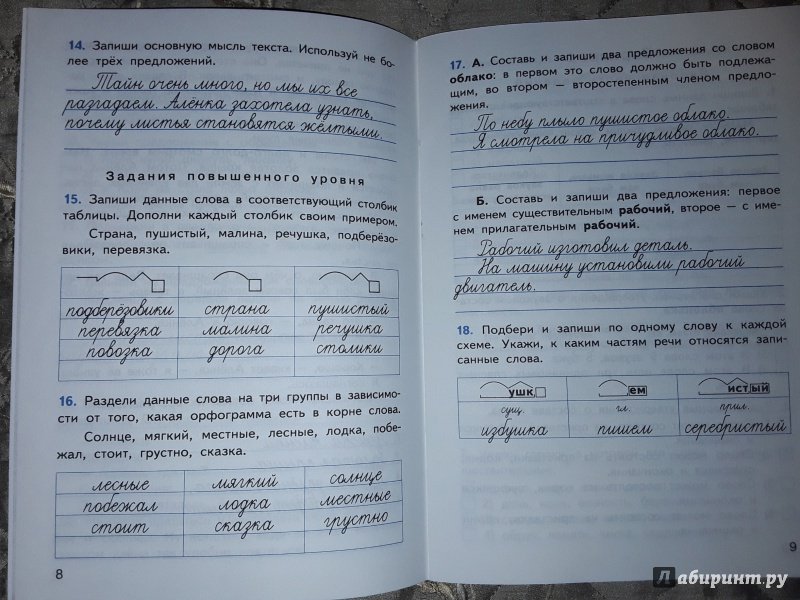 14. Запиши основную мысль текста. Используй не бо-
лее трёх предложений.
Тайн очень много, но мы их все
разгадаем. Алёнка захотела узнать,
почему листья становятся жёлтыми.
Задания повышенного уровня
15. Запиши данные слова в соответствующий столбик
таблицы. Дополни каждый столбик своим примером.
Страна, пушистый, малина, речушка, подберёзо-
вики, перевязка.
подберёзовики страна пушистый
перевязка малина речушка
повозка дорога столики
16. Раздели данные слова на три группы в зависимо-
сти от того, какая орфограмма есть в корне слова.
Солнце, мягкий, местные, лесные, лодка, побе-
жал, стоит, грустно, сказка.
лесные мягкий солнце
побежал лодка местные
стоит сказка грустно
8
17. А. Составь и запиши два предложения со словом
облако: в первом это слово должно быть подлежа-
щим, во втором — второстепенным членом предло-
жения.
По небу плыло пушистое облако.
Я смотрела на причудливое облако.
Б. Составь и запиши два предложения: первое
с именем существительным рабочий, второе — с име-
нем прилагательным рабочий.
Рабочий изготовил деталь.
На машину установили рабочий
двигатель.
18. Подбери и запиши по одному слову к каждой
схеме. Укажи, к каким частям речи относятся запи-
санные слова.
ушк ем ист ый
сущ. гл. прил.
избушка пишем серебристый
9
Лабиринт.ру